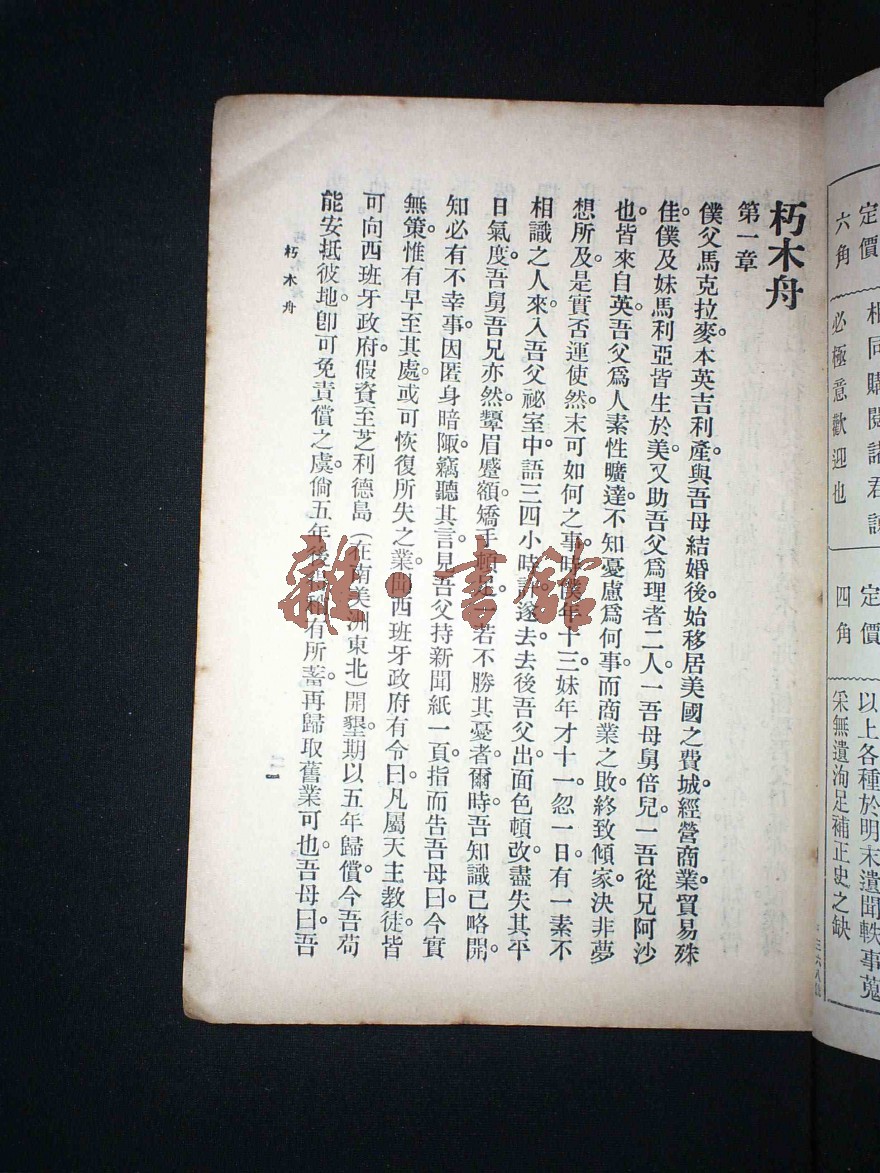 定價
六角
相同購閱諸君諒
必極意歡迎也
定價
四角
以上各種於明末遺聞軼事蒐
采無遺洵足補正史之缺
朽木舟
第一章
僕父馬克拉麥本英吉利產與吾母結婚後始移居美國之費城。經營商業貿易殊
佳。僕及妹馬利亞皆生於美。又助吾父爲理者二人。一吾母舅倍兒一吾從兄阿沙
也。皆來自英。吾父爲人素性曠達。不知憂慮爲何事。而商業之敗。終致傾家。決非夢
想所及。是實否運使然。末可如何之事。時僕年十三。妹年才十一。忽一日。有一素不
相識之人來入吾父祕室中。語三四小時許。遂去。去後吾父出面色頓改。盡失其平
日氣度。吾舅吾兄亦然。顰眉蹙額。嬌手頓足。一若不勝其憂者。爾時吾知識已略開。
知必有不幸事。因匿身暗陬竊聽其言。見吾父持新聞紙一頁。指而告吾母曰。今實
無策。惟有早至其處。或可恢復所失之業。聞西班牙政府有令曰。凡屬天主教徒。皆
可向西班牙政府假資至芝利德島（在南美洲東北）開墾。期以五年歸償。今吾苟
能安抵彼地。卽可免責償之虞。倘五年後得稍有所蓄。再歸取舊業可也。吾母曰。吾
朽木舟
一
雜·書館